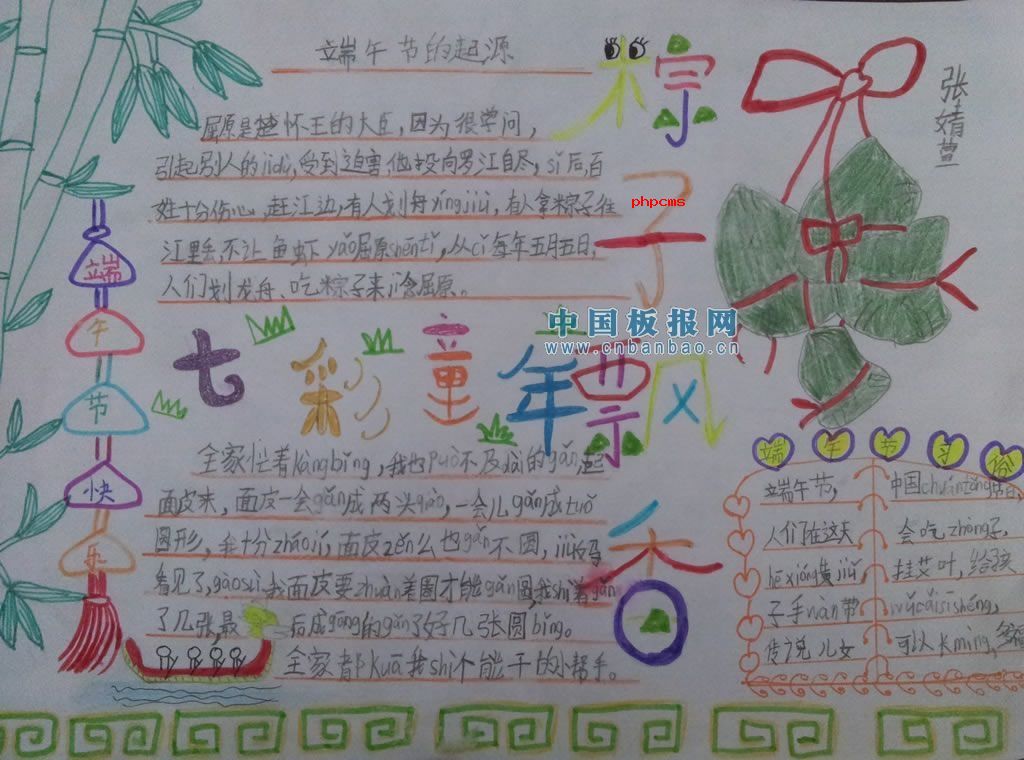 端午节的起源
屈原是楚怀王的大臣,因为很学问,
引起别人的jídù,受到迫害,他投向罗江自尽,sǐ后,百
姓十分伤心,赶江边,有人划舟xíngjiù,有人拿粽子往
江里丢,不让鱼虾yǎo屈原shēntǐ,从cǐ每年五月五日,
人们划龙舟、吃粽子来jì念屈原。
粽
子
飘
香
phpcms
张婧萱
中国板报网
www.cnbanbao.cn
端
午
节
快
乐
七彩童年
全家忙着kàngbǐng,我也Pò不及dài的gǎn起
面皮来,面皮一会gǎn成两头gāo,一会儿gǎn成tuǒ
圆形,我十分zhāojí,面皮zěn么也gǎn不圆,妈
看见了,gàosù我面皮要zhuàn着圈才能gǎn圆,我shì着gǎn
了几张,最后成gōng的gǎn了好几张圆bǐng。
全家都kuā我shì个能干的小帮手。
端午节习俗
端午节,
人们在这天
hē xióng黄jiǔ
子手wàn带
传说儿女
中国chuántǒng节日,
会吃zhòng子,
挂艾叶,给孩
wǔcǎisīshéng,